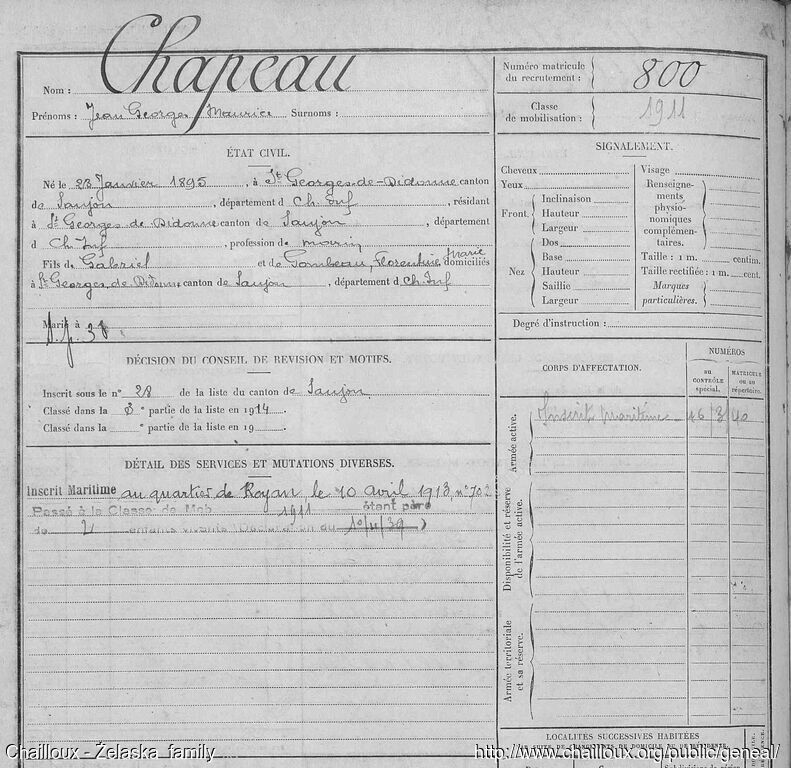 Nom : Chapeau
Prénoms : Jean Georges Maurice Surnoms :
Numéro matricule du recrutement : 800
Classe de mobilisation : 1911
ÉTAT CIVIL.
Né le 23 Janvier 1895, à St Georges-de-Didonne canton
de Saujon, département d Ch. Inf, résidant
à St Georges de Didonne canton de Saujon, département
d Ch. Inf, profession de marin
Fils de Gabriel et de Gombeau, Florentine Marie domiciliés
à St Georges de Didonne canton de Saujon, département d Ch. Inf
Marié à
SIGNALEMENT.
Cheveux
Yeux
Front.
Inclinaison
Hauteur
Largeur
Nez
Dos
Base
Hauteur
Saillie
Largeur
Visage
Renseignements physionomiques complémentaires.
Taille : 1 m. centim.
Taille rectifiée : 1 m. cent.
Marques particulières.
Degré d'instruction :
DÉCISION DU CONSEIL DE REVISION ET MOTIFS.
Inscrit sous le n° 28 de la liste du canton de Saujon
Classé dans la 3e partie de la liste en 1914
Classé dans la ° partie de la liste en 19
DÉTAIL DES SERVICES ET MUTATIONS DIVERSES.
Inscrit Maritime au quartier de Royan, le 10 avril 1913, n° 702
Passé à la Classe de Mob 1911 étant père
de 2 enfants vivants (Déclaration du 10/4/39)
CORPS D'AFFECTATION.
NUMÉROS
AU CONTRÔLE SPÉCIAL.
MATRICULE OU AU RÉPERTOIRE.
Armée active.
Inscrit Maritime 16/3/40
Disponibilité et réserve de l'armée active.
Armée territoriale et sa réserve.
LOCALITÉS SUCCESSIVES HABITÉES
Chailloux - Želaska family
http://www.chailloux.org/public/geneal/